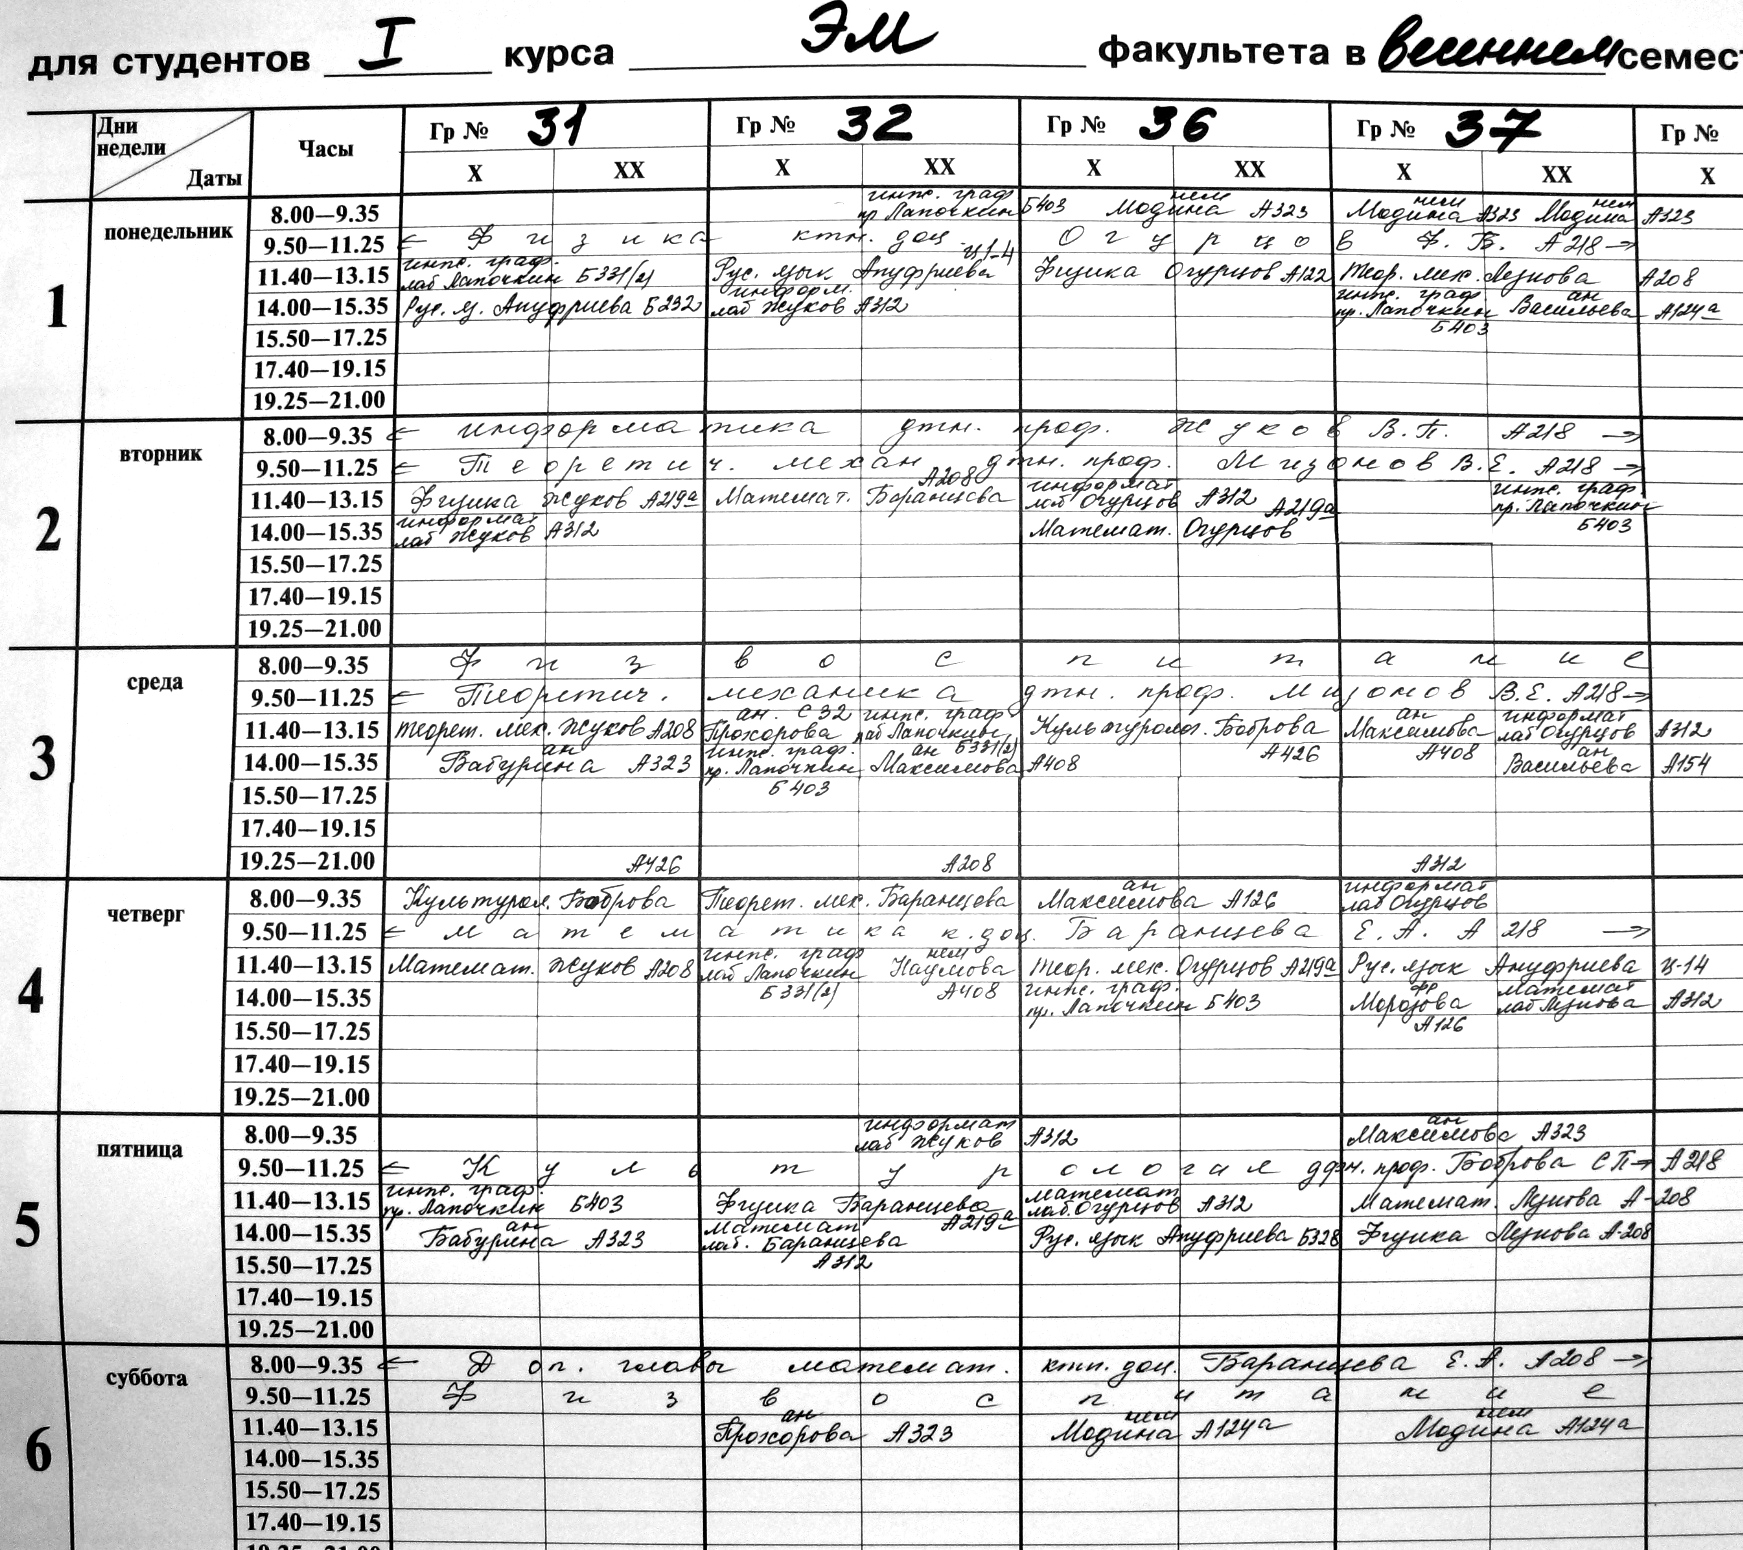 для студентов I курса ЭМ факультета в весеннем семест
Дни недели Даты Часы Гр № 31 Гр № 32 Гр № 36 Гр № 37 Гр №
X XX X XX X XX X XX X
1 понедельник
8.00—9.35 инж. граф. пр Лапочкин Б403 нем Модина А323 нем Модина А323 нем Модина А323
9.50—11.25 ← Физика ктн. доц Огурцов Ф. В. А218 →
11.40—13.15 инж. граф. лаб Лапочкин Б331(2) Рус. язык Ануфриева Ц1-4 Физика Огурцов А122 Теор. мех. Лезнова А208
14.00—15.35 Рус. я. Ануфриева Б232 информ. лаб Жуков А312 инж. граф. пр. Лапочкин Б403 ан Васильева А124а
15.50—17.25
17.40—19.15
19.25—21.00
2 вторник
8.00—9.35 ← информатика дтн. проф. Жуков В.П. А218 →
9.50—11.25 ← Теоретич. механ дтн. проф. Мизонов В.Е. А218 →
11.40—13.15 Физика Жуков А219а Математ. Баранцева А208 информат лаб Огурцов А312 инж. граф. пр. Лапочкин Б403
14.00—15.35 информат лаб Жуков А312 Математ. Огурцов А219а
15.50—17.25
17.40—19.15
19.25—21.00
3 среда
8.00—9.35 Физвоспитание
9.50—11.25 ← Теоретич. механика дтн. проф. Мизонов В.Е. А218 →
11.40—13.15 теорет. мех. Жуков А208 ан. С32 Прохорова инж. граф лаб Лапочкин Б331(2) Культурол. Боброва А426 ан Максимова А408 информат лаб Огурцов А312
14.00—15.35 ан Бабурина А323 инж. граф. пр. Лапочкин Б403 ан Максимова А408 ан Васильева А154
15.50—17.25
17.40—19.15
19.25—21.00 А426 А208 А312
4 четверг
8.00—9.35 Культурол. Боброва Теорет. мех. Баранцева ан Максимова А126 информат лаб Огурцов
9.50—11.25 ← математика к.доц. Баранцева Е.А. А218 →
11.40—13.15 Математ. Жуков А208 инж. граф лаб Лапочкин Б331(2) нем Наумова А408 Теор. мех. Огурцов А219а Рус. язык Ануфриева Ц-14
14.00—15.35 инж. граф. пр. Лапочкин Б403 фр Морозова А126 математ лаб Лезнова А312
15.50—17.25
17.40—19.15
19.25—21.00
5 пятница
8.00—9.35 информат лаб Жуков А312 ан Максимова А323
9.50—11.25 ← Культурология дфн. проф. Боброва СП → А218
11.40—13.15 инж. граф. пр. Лапочкин Б403 Физика Баранцева А219а математ лаб. Огурцов А312 Математ. Лезнова А-208
14.00—15.35 ан Бабурина А323 математ лаб. Баранцева А312 Рус. язык Ануфриева Б328 Физика Лезнова А-208
15.50—17.25
17.40—19.15
19.25—21.00
6 суббота
8.00—9.35 ← Доп. главы математ. ктн. доц. Баранцева Е.А. А208 →
9.50—11.25 Физвоспитание
11.40—13.15 ан Прохорова А323 нем Модина А124а нем Модина А124а
14.00—15.35
15.50—17.25
17.40—19.15
19.25—21.00